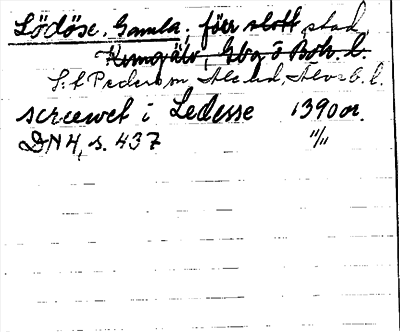 Lödöse, Gamla, förr slott stad
Kungälv, Gbg o Boh. l.
S:t Peders sn Ale hd, Älvsb. l.
screewet i Ledesse 1390 or.
DN 4, s. 437 11/11